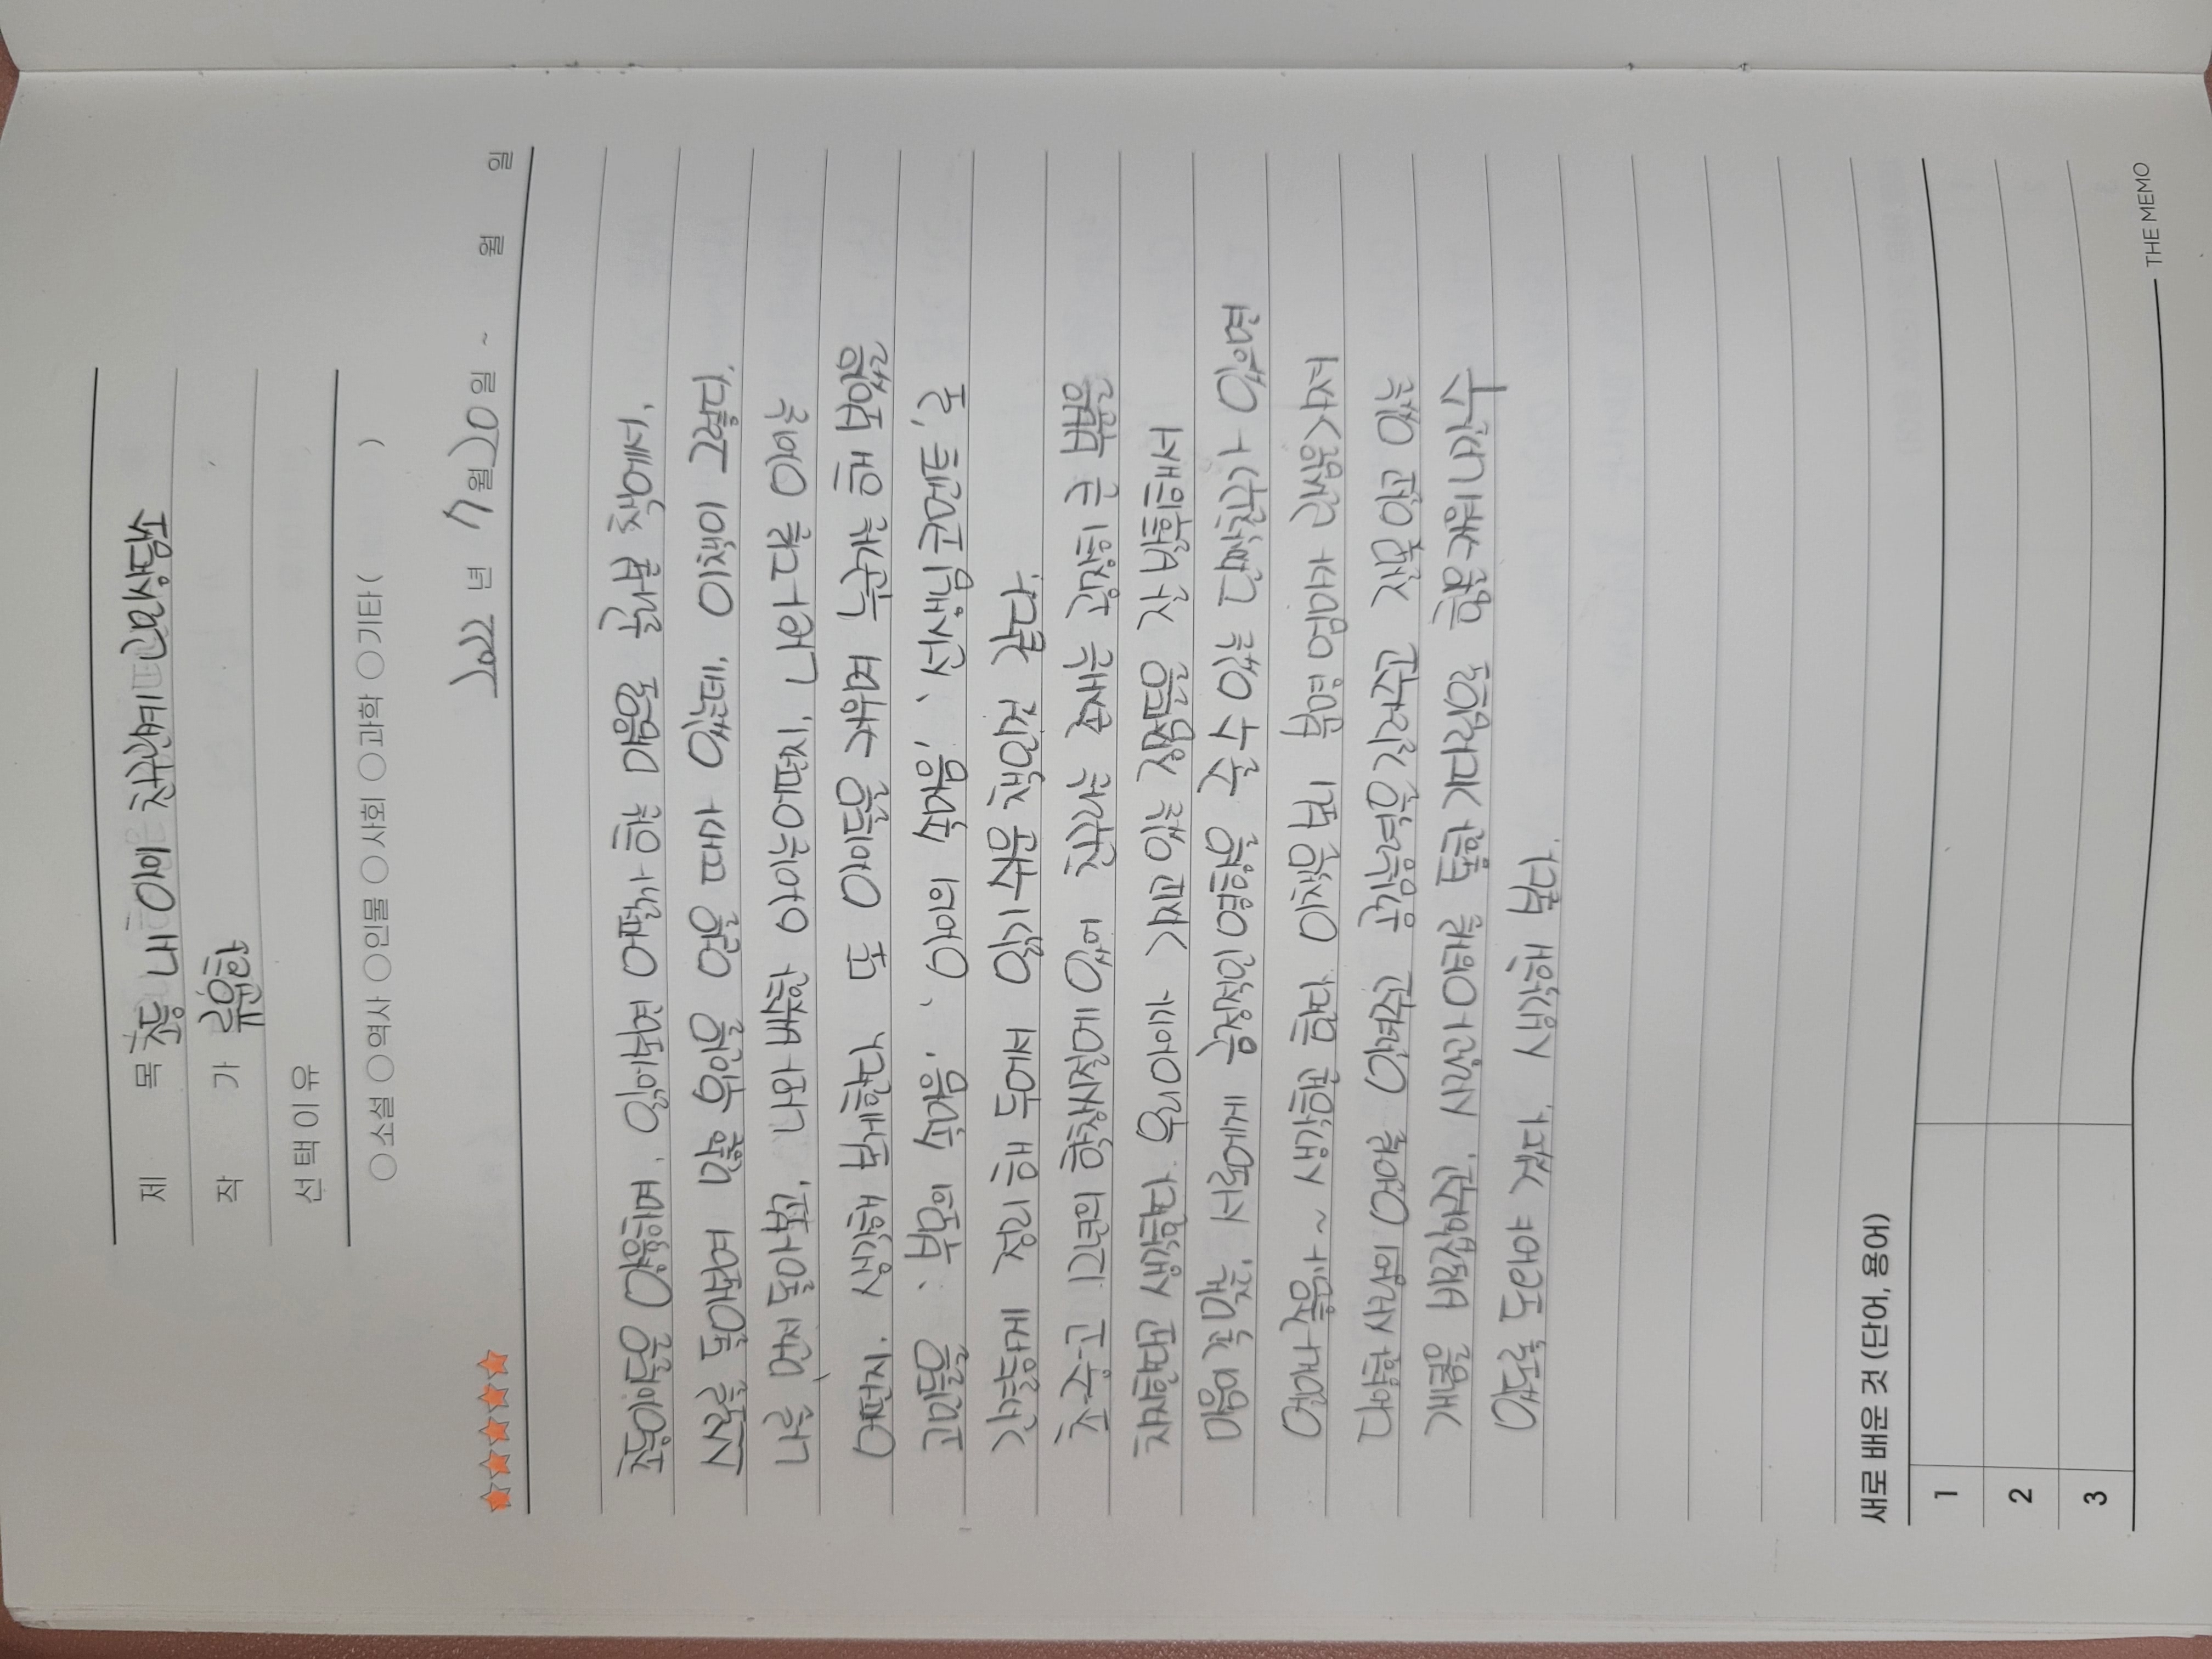 제 목 초등 내 아이 친구관계 고민상담소
작 가 류윤환
선택이유
○소설 ○역사 ○인물 ○사회 ○과학 ○기타( )
2022년 7월 20일 ~ 월 일
초등아이들은 양육하며, 읽어보면 어떨까 하는 마음으로 골라본 책에서,
스로를 돌아보며 많은 위안을 얻을 때가 있는데, 이책이 그렇다.
나를 먼저 돌아보고, 나와 비슷한 아이는 어떤지, 나와 다른 아이는
어떤지, 생각해 보게한다. 또 아이들을 키우며 누군가는 해 보았을
고민들을 '부모의 속마음' '아이의 속마음' '선생님 코멘트'로
간결하게 정리 해 두어서 읽기 쉬운 책인것 같다.
초-중-고 12년의 학창시절에 있어 친구라는 존재는 굉장히 큰 부분을
차지한다고 생각한다. 우리아이가 가지고 있는 장점들을 잘 발휘해서
마음이 꼭 맞는, 서로에게 긍정적인 영향을 줄 수 있는 단짝친구가 있으면
얼마나 좋을까 ~ 생각하곤 한다. 이책을 보니 분명 엄마가 관심을 가져
다양한 사랑의 언어를 알려주고 공감능력을 길러주고 잘못 알고 있는
개념을 바로잡아주고, 사랑과 이해를 통한 기다림으로 힘을 키워 나갈 수
있도록 도와야 겠다. 생각해 본다.
새로 배운 것 (단어, 용어)
1
2
3
THE MEMO